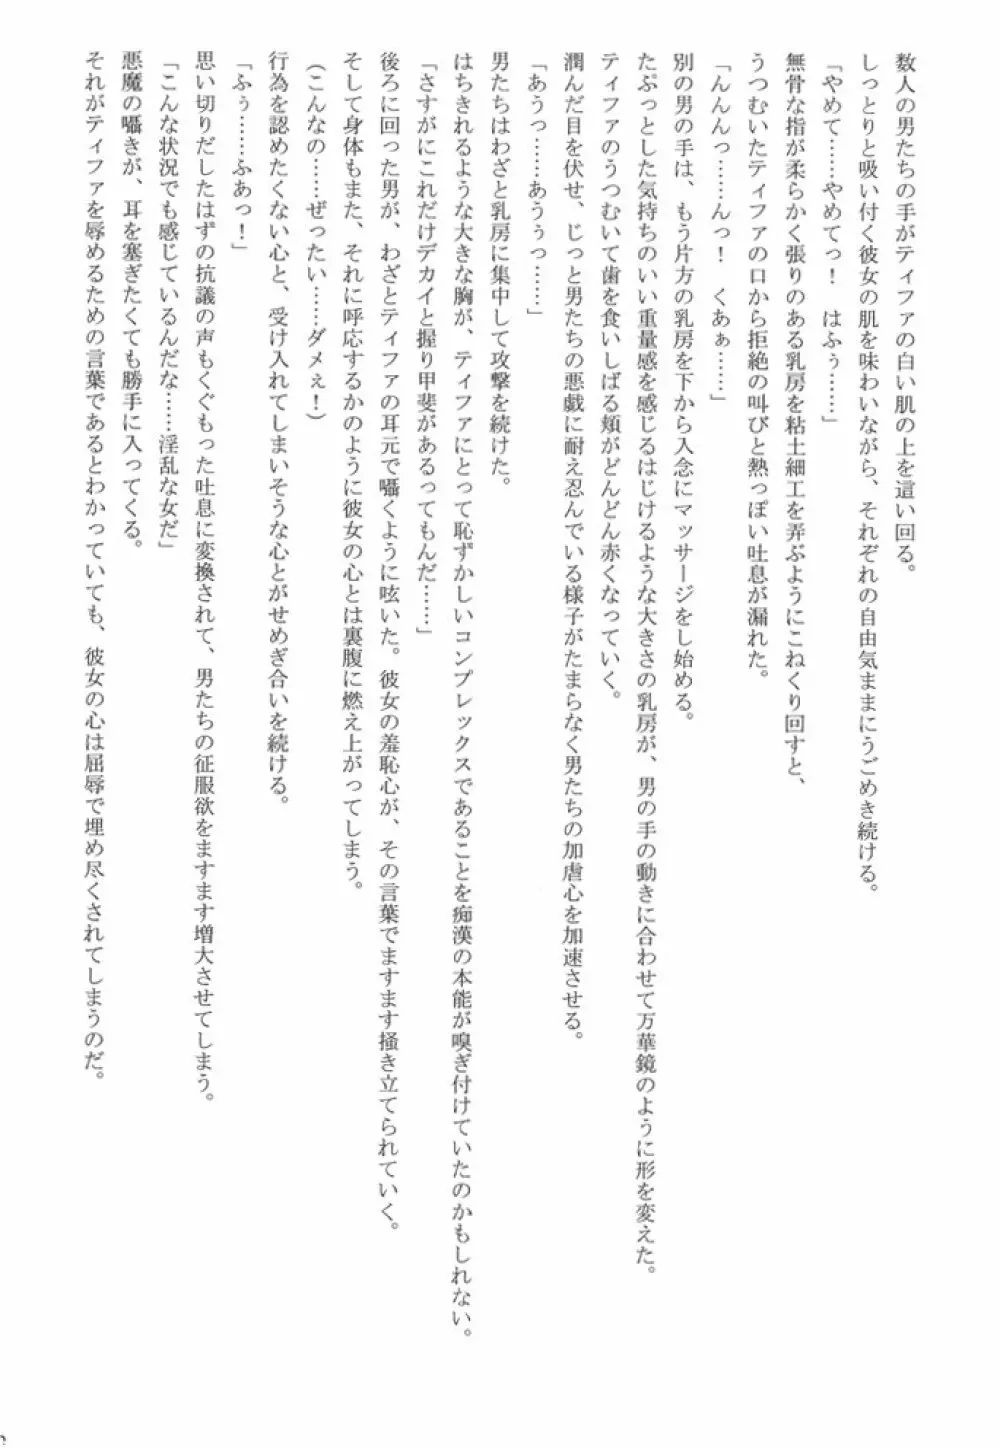 数人の男たちの手がティファの白い肌の上を這い回る。
しっとりと吸い付く彼女の肌を味わいながら、それぞれの自由気ままにうごめき続ける。
「やめて……やめてっ！　はふぅ……」
無骨な指が柔らかく張りのある乳房を粘土細工を弄ぶようにこねくり回すと、
うつむいたティファの口から拒絶の叫びと熱っぽい吐息が漏れた。
「んんんっ……んっ！　くあぁ……」
別の男の手は、もう片方の乳房を下から入念にマッサージをし始める。
たぷっとした気持ちのいい重量感を感じるはじけるような大きさの乳房が、男の手の動きに合わせて万華鏡のように形を変えた。
ティファのうつむいて歯を食いしばる頬がどんどん赤くなっていく。
潤んだ目を伏せ、じっと男たちの悪戯に耐え忍んでいる様子がたまらなく男たちの加虐心を加速させる。
「あうっ……あうぅっ……」
男たちはわざと乳房に集中して攻撃を続けた。
はちきれるような大きな胸が、ティファにとって恥ずかしいコンプレックスであることを痴漢の本能が嗅ぎ付けていたのかもしれない。
「さすがにこれだけデカイと握り甲斐があるってもんだ……」
後ろに回った男が、わざとティファの耳元で囁くように呟いた。彼女の羞恥心が、その言葉でますます掻き立てられていく。
そして身体もまた、それに呼応するかのように彼女の心とは裏腹に燃え上がってしまう。
（こんなの……ぜったい……ダメぇ！）
行為を認めたくない心と、受け入れてしまいそうな心とがせめぎ合いを続ける。
「ふぅ……ふあっ！」
思い切りだしたはずの抗議の声もくぐもった吐息に変換されて、男たちの征服欲をますます増大させてしまう。
「こんな状況でも感じているんだな……淫乱な女だ」
悪魔の囁きが、耳を塞ぎたくても勝手に入ってくる。
それがティファを辱めるための言葉であるとわかっていても、彼女の心は屈辱で埋め尽くされてしまうのだ。